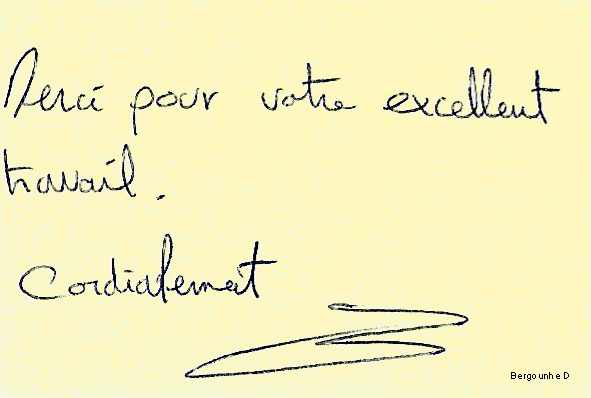 Merci pour votre excellent
travail.
Cordialement
Bergounhe D